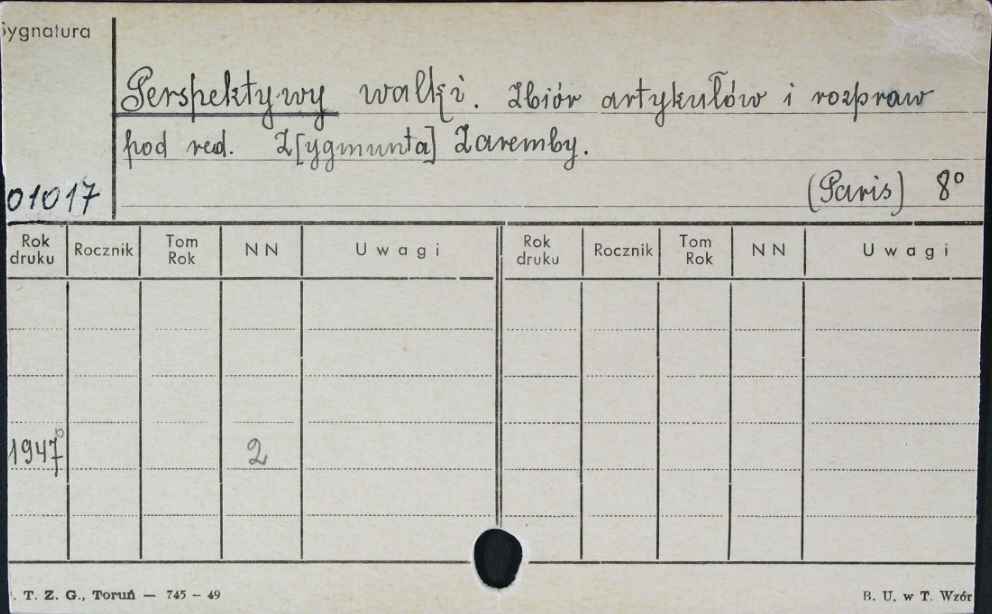 Sygnatura
Perspektywy walki. Zbiór artykułów i rozpraw
pod red. Z[ygmunta] Zaremby.
01017
(Paris) 8°
Rok druku Rocznik Tom Rok NN Uwagi Rok druku Rocznik Tom Rok NN Uwagi
1947° 2
T. Z. G., Toruń — 745 – 49 B. U. w T. Wzór